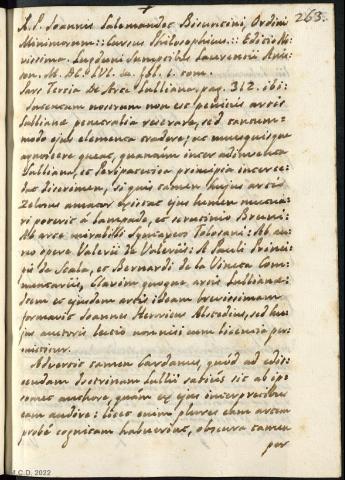 263.
R. P. Joannis Salamandes Bisuntini, Ordini
Minimorum :: Cursus Philosophicus :: Editio No:
vissima. Lugduni Sumptibus Laurentii Anis:
son. M. DC. LVI. in fol. 1. tom.
Pars Tertia De Arte Lulliana, pag. 312. ibi:
Intentum nostrum non est penitiùs artis
Lullianæ penetralia reserare, sed tantum:
modo ejus elementa tradere, ut unusquisque
agnoscere queat, quantum inter adinventa
Lulliana, et Peripatetica principia interce:
dat discrimen, si quis tamen hujus artis
Zelosus amator existat ejus lumen mutua:
ri poterit à lampade, et scrutinio Bruni:
Ab arte mirabili Syntaxeos Tolosani: Ab au:
reo opere Valerii de Valeriis: A Pauli Princi:
pii de Scala, et Bernardi de la Vineta Com:
mentariis, Clavim quoque artis Lullianæ
idem et ejusdem artis ideam brevissimam
formavit Joannes Henricus Alstedius, sed hu:
jus auctoris lectio non nisi cum licencia per:
mittitur.
Advertit tamen Cardanus, quòd ad edis:
cendam doctrinam Lullii satiùs sit ab ipso
met authore, quàm ex ejus interpretibus
eam audire: licet enim plures eam artem
probè cognitam habuerint, obscura tamen
per
C.D. 2022